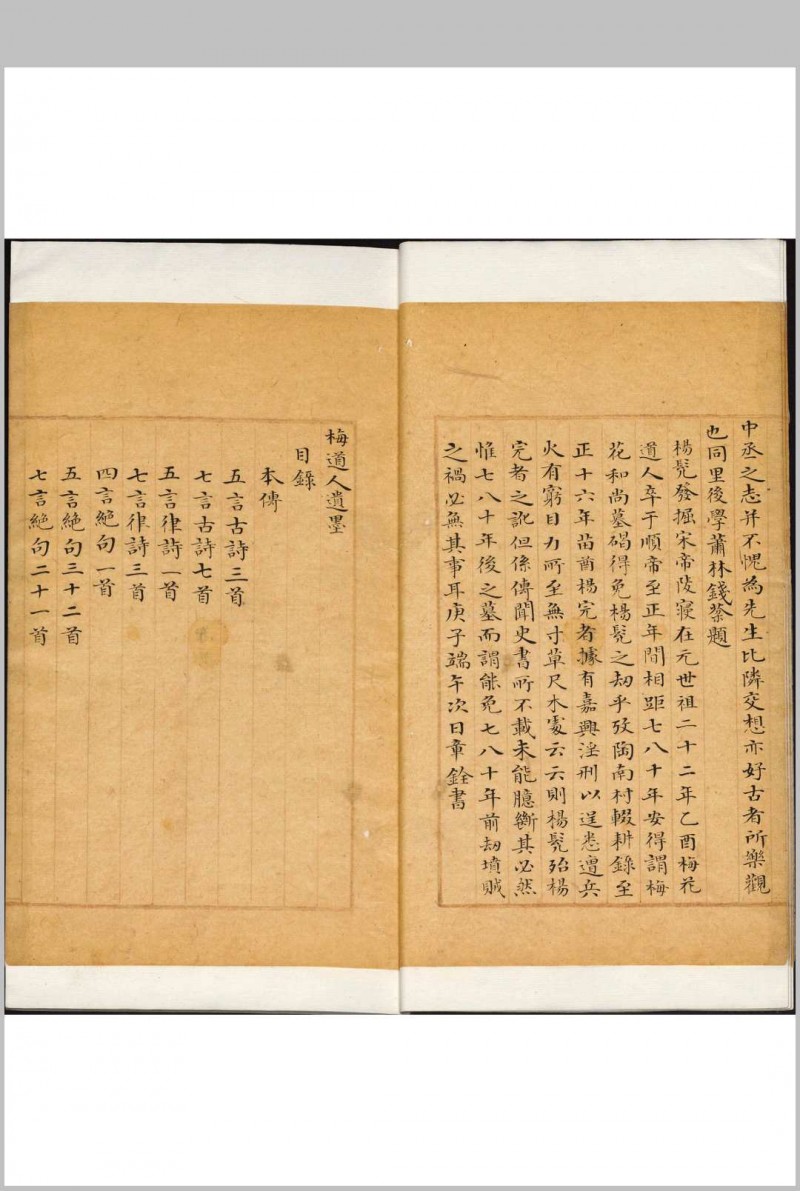 中丞之志并不愧為先生比隣交想亦好古者所樂觀
也同里後學蕭林錢棻題
楊髡發掘宋帝陵寢在元世祖二十二年乙酉梅花
道人卒于順帝至正年間相距七八十年安得謂梅
花和尚墓碣得免楊髡之劫乎攷陶南村輟耕錄至
正十六年苗酋楊完者據有嘉興淫刑以逞悉遭兵
火有窮目力所至無寸草尺木處云云則楊髡殆楊
完者之訛但係傳聞史書所不載未能臆斷其必然
惟七八十年後之墓而謂能免七八十年前劫墳賊
之禍必無其事耳庚子端午次日章銓書
梅道人遺墨
目錄
本傳
五言古詩三首
七言古詩七首
五言律詩一首
七言律詩三首
四言絕句一首
五言絕句三十二首
七言絕句二十一首